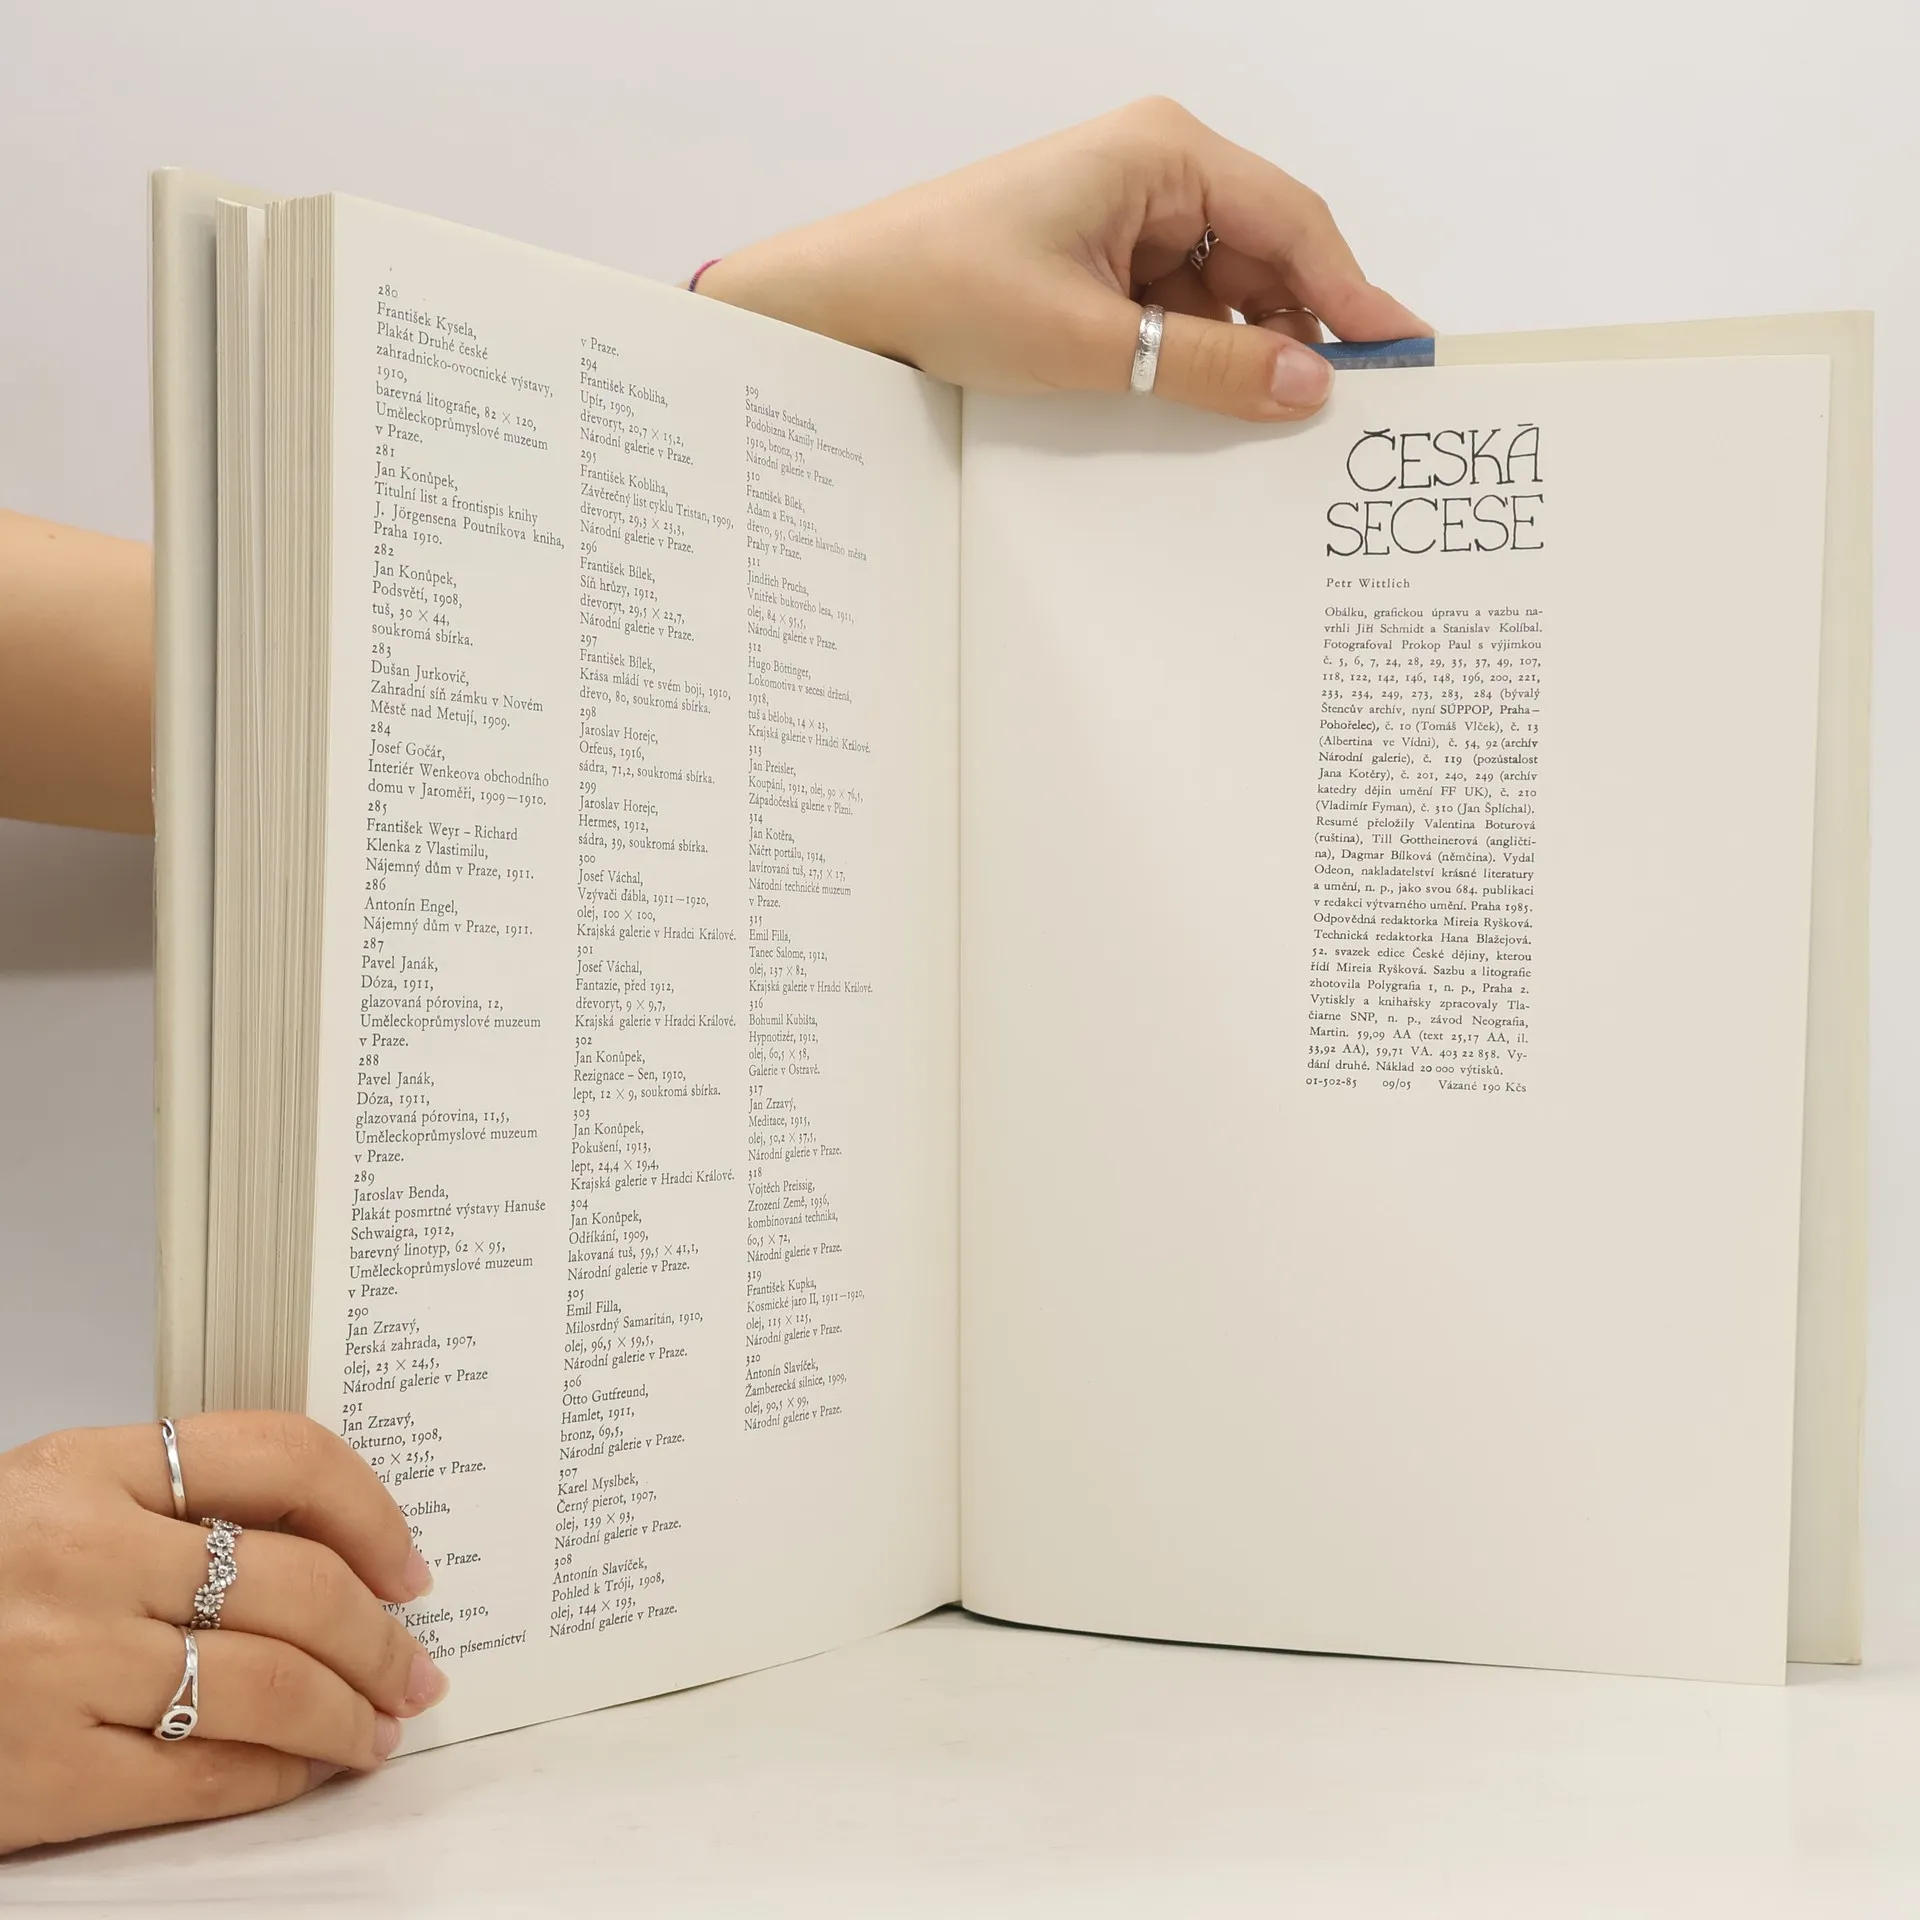 280
František Kysela,
Plakát Druhé české
zahradnicko-ovocnické výstavy,
1910,
barevná litografie, 82 × 120,
Uměleckoprůmyslové muzeum
v Praze.
281
Jan Konůpek,
Titulní list a frontispis knihy
J. Jörgensena Poutníkova kniha,
Praha 1910.
282
Jan Konůpek,
Podsvětí, 1908,
tuš, 30 × 44,
soukromá sbírka.
283
Dušan Jurkovič,
Zahradní síň zámku v Novém
Městě nad Metují, 1909.
284
Josef Gočár,
Interiér Wenkeova obchodního
domu v Jaroměři, 1909—1910.
285
František Weyr – Richard
Klenka z Vlastimilu,
Nájemný dům v Praze, 1911.
286
Antonín Engel,
Nájemný dům v Praze, 1911.
287
Pavel Janák,
Dóza, 1911,
glazovaná pórovina, 12,
Uměleckoprůmyslové muzeum
v Praze.
288
Pavel Janák,
Dóza, 1911,
glazovaná pórovina, 11,5,
Uměleckoprůmyslové muzeum
v Praze.
289
Jaroslav Benda,
Plakát posmrtné výstavy Hanuše
Schwaigra, 1912,
barevný linotyp, 62 × 95,
Uměleckoprůmyslové muzeum
v Praze.
290
Jan Zrzavý,
Perská zahrada, 1907,
olej, 23 × 24,5,
Národní galerie v Praze
291
Jan Zrzavý,
Nokturno, 1908,
20 × 25,5,
galerie v Praze.
Kobliha,
v Praze.
Křtitele, 1910,
písemnictví
v Praze.
294
František Kobliha,
Upír, 1909,
dřevoryt, 20,7 × 15,2,
Národní galerie v Praze.
295
František Kobliha,
Závěrečný list cyklu Tristan, 1909,
dřevoryt, 29,3 × 23,3,
Národní galerie v Praze.
296
František Bílek,
Síň hrůzy, 1912,
dřevoryt, 29,5 × 22,7,
Národní galerie v Praze.
297
František Bílek,
Krása mládí ve svém boji, 1910,
dřevo, 80, soukromá sbírka.
298
Jaroslav Horejc,
Orfeus, 1916,
sádra, 71,2, soukromá sbírka.
299
Jaroslav Horejc,
Hermes, 1912,
sádra, 39, soukromá sbírka.
300
Josef Váchal,
Vzývači ďábla, 1911—1920,
olej, 100 × 100,
Krajská galerie v Hradci Králové.
301
Josef Váchal,
Fantazie, před 1912,
dřevoryt, 9 × 9,7,
Krajská galerie v Hradci Králové.
302
Jan Konůpek,
Rezignace – Sen, 1910,
lept, 12 × 9, soukromá sbírka.
303
Jan Konůpek,
Pokušení, 1913,
lept, 24,4 × 19,4,
Krajská galerie v Hradci Králové.
304
Jan Konůpek,
Odříkání, 1909,
lakovaná tuš, 59,5 × 41,1,
Národní galerie v Praze.
305
Emil Filla,
Milosrdný Samaritán, 1910,
olej, 96,5 × 59,5,
Národní galerie v Praze.
306
Otto Gutfreund,
Hamlet, 1911,
bronz, 69,5,
Národní galerie v Praze.
307
Karel Myslbek,
Černý pierot, 1907,
olej, 139 × 93,
Národní galerie v Praze.
308
Antonín Slavíček,
Pohled k Tróji, 1908,
olej, 144 × 193,
Národní galerie v Praze.
309
Stanislav Sucharda,
Podobizna Kamily Heverochové,
1910, bronz, 37,
Národní galerie v Praze.
310
František Bílek,
Adam a Eva, 1921,
dřevo, 95, Galerie hlavního města
Prahy v Praze.
311
Jindřich Prucha,
Vnitřek bukového lesa, 1911,
olej, 84 × 95,5,
Národní galerie v Praze.
312
Hugo Böttinger,
Lokomotiva v secesi držená,
1918,
tuš a běloba, 14 × 23,
Krajská galerie v Hradci Králové.
313
Jan Preisler,
Koupání, 1912, olej, 90 × 76,5,
Západočeská galerie v Plzni.
314
Jan Kotěra,
Náčrt portálu, 1914,
lavírovaná tuš, 27,5 × 17,
Národní technické muzeum
v Praze.
315
Emil Filla,
Tanec Salome, 1912,
olej, 137 × 82,
Krajská galerie v Hradci Králové.
316
Bohumil Kubišta,
Hypnotizér, 1912,
olej, 60,5 × 58,
Galerie v Ostravě.
317
Jan Zrzavý,
Meditace, 1915,
olej, 50,2 × 37,5,
Národní galerie v Praze.
318
Vojtěch Preissig,
Zrození Země, 1936,
kombinovaná technika,
60,5 × 72,
Národní galerie v Praze.
319
František Kupka,
Kosmické jaro II, 1911—1920,
olej, 115 × 125,
Národní galerie v Praze.
320
Antonín Slavíček,
Žamberecká silnice, 1909,
olej, 90,5 × 99,
Národní galerie v Praze.
ČESKÁ
SECESE
Petr Wittlich
Obálku, grafickou úpravu a vazbu na-
vrhli Jiří Schmidt a Stanislav Kolíbal.
Fotografoval Prokop Paul s výjimkou
č. 5, 6, 7, 24, 28, 29, 35, 37, 49, 107,
118, 122, 142, 146, 148, 196, 200, 221,
233, 234, 249, 273, 283, 284 (bývalý
Štencův archív, nyní SÚPPOP, Praha–
Pohořelec), č. 10 (Tomáš Vlček), č. 13
(Albertina ve Vídni), č. 54, 92 (archív
Národní galerie), č. 119 (pozůstalost
Jana Kotěry), č. 201, 240, 249 (archív
katedry dějin umění FF UK), č. 210
(Vladimír Fyman), č. 310 (Jan Šplíchal).
Resumé přeložily Valentina Boturová
(ruština), Till Gottheinerová (angličti-
na), Dagmar Bílková (němčina). Vydal
Odeon, nakladatelství krásné literatury
a umění, n. p., jako svou 684. publikaci
v redakci výtvarného umění. Praha 1985.
Odpovědná redaktorka Mireia Ryšková.
Technická redaktorka Hana Blažejová.
52. svazek edice České dějiny, kterou
řídí Mireia Ryšková. Sazbu a litografie
zhotovila Polygrafia 1, n. p., Praha 2.
Vytiskly a knihařsky zpracovaly Tla-
čiarne SNP, n. p., závod Neografia,
Martin. 59,09 AA (text 25,17 AA, il.
33,92 AA), 59,71 VA. 403 22 858. Vy-
dání druhé. Náklad 20 000 výtisků.
01-502-85 09/05 Vázané 190 Kčs